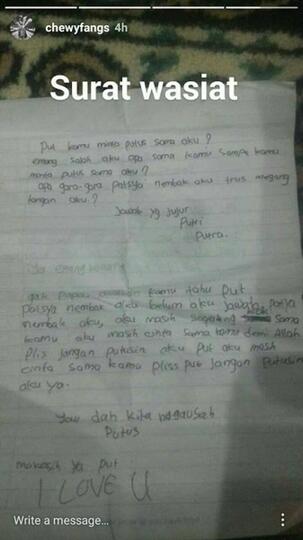 chewyfangs 4h
Surat wasiat
Put kamu minta putus sama aku?
emang salah aku apa sama kamu sampe kamu
minta putus sama aku?
apa gara-gara Patsya nembak aku trus megang
tangan aku?
Jawab yg jujur
Putri
Putra.
Ya emang
gak papa kamu tahu Put
Patsya nembak aku belum aku jawab, patsya
nembak aku, aku masih sayang sama
kamu aku masih cinta sama kamu demi Allah
Plis jangan putusin aku put aku masih
cinta sama kamu pliss put jangan putusin
aku ya.
Yow dah kita nggauseh
Putus
makasih ya put
I LOVE U
Write a message...